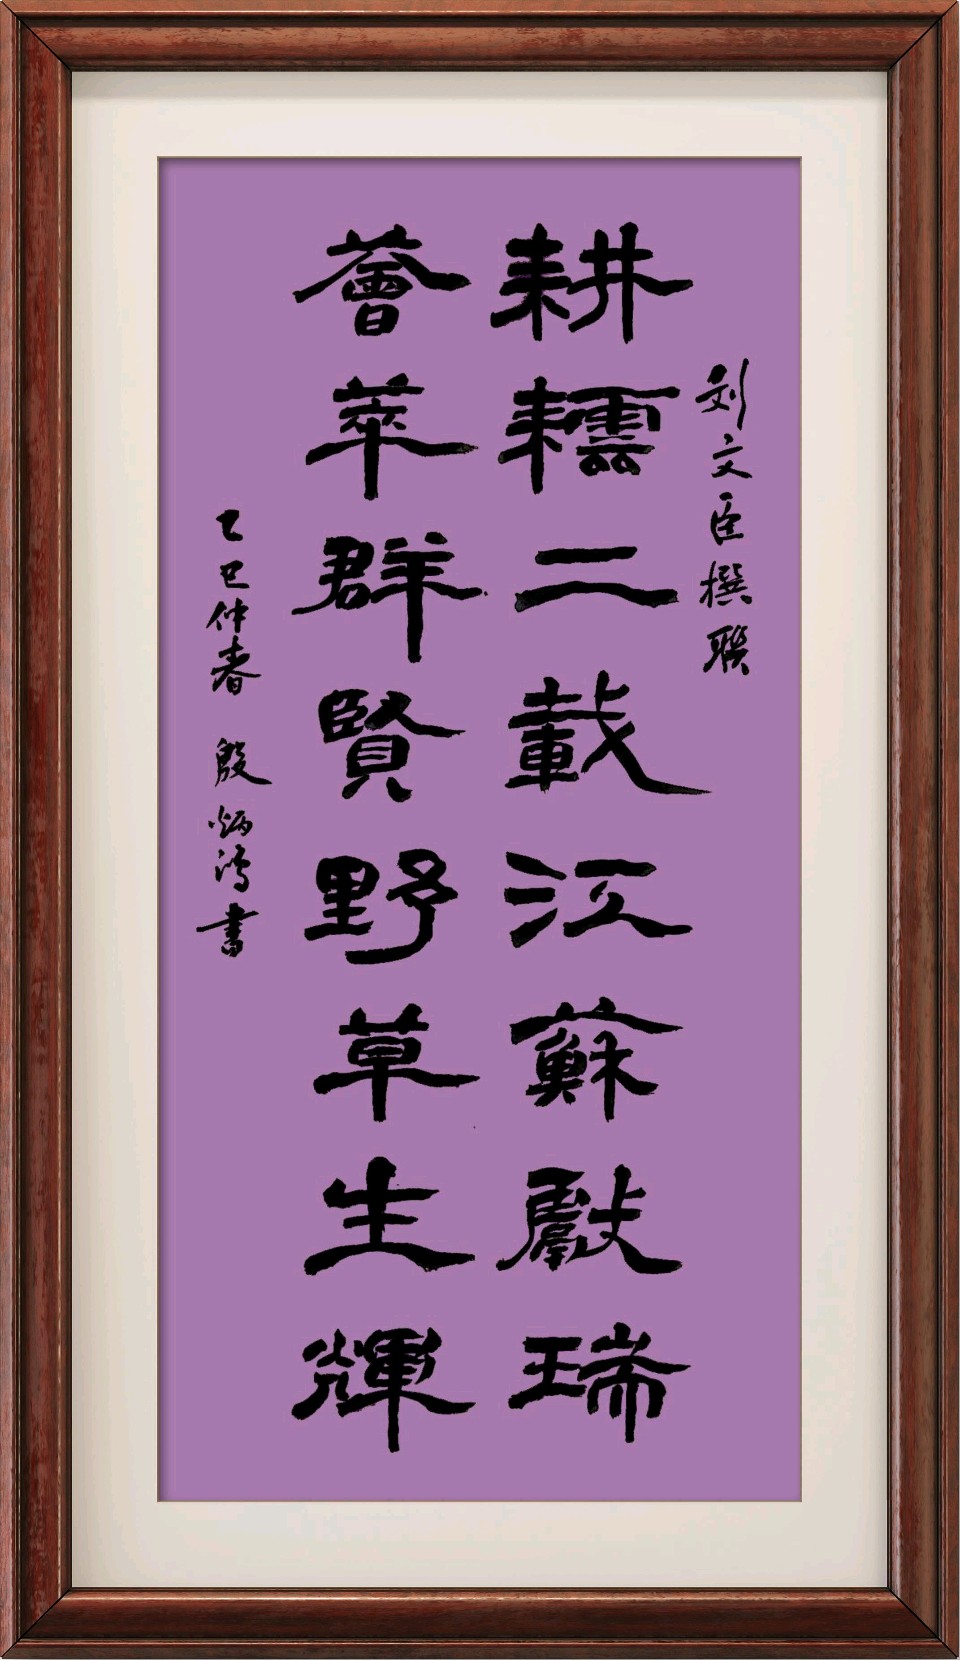 刘文臣撰聯
耕耘二載江蘇獻瑞
薈萃群賢野草生輝
乙巳仲春 殷炳鴻書